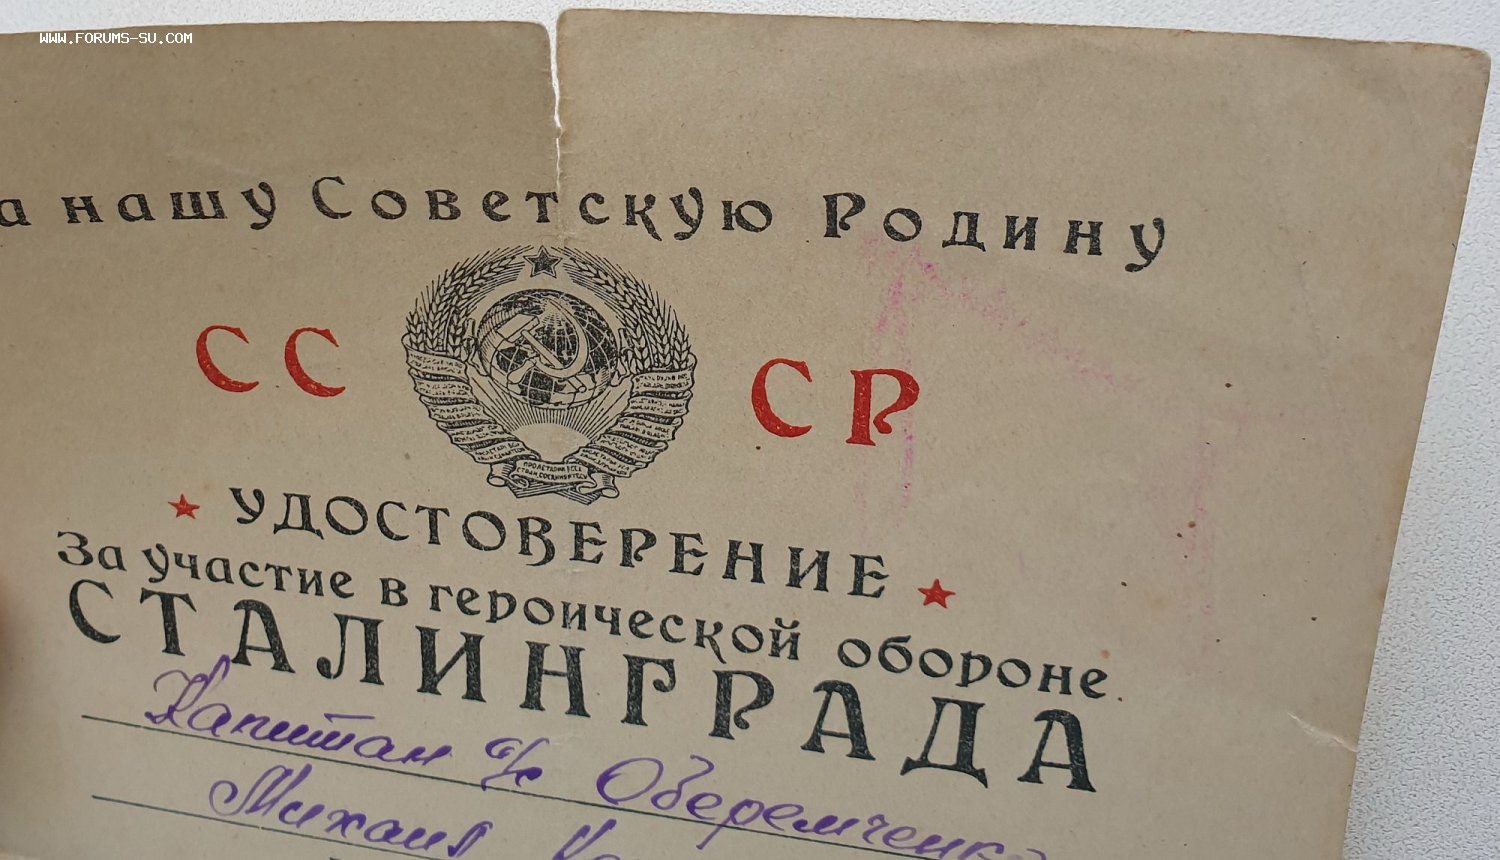 WWW.FORUMS-SU.COM
а нашу Советскую Родину
СС СР
ПРОЛЕТАРИИ ВСЕХ
СТРАН СОЕДИНЯЙТЕСЬ
УДОСТОВЕРЕНИЕ
За участие в героической обороне
СТАЛИНГРАДА
Капитан а/с Оберемченко
Михаил